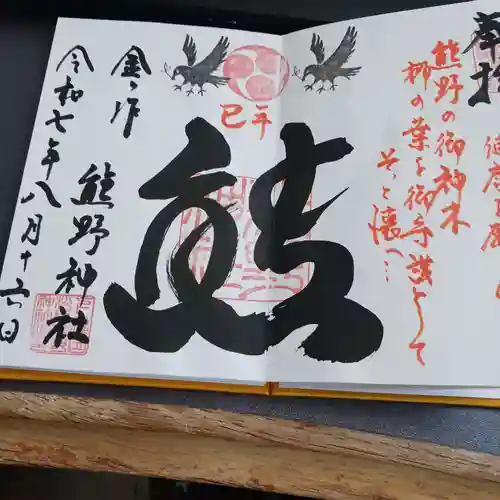 奉拝
熊野の御神木
梛の葉を御守護として
そっと懐へ…
巳年
熊
金ヶ作
熊野神社
令和七年八月十六日